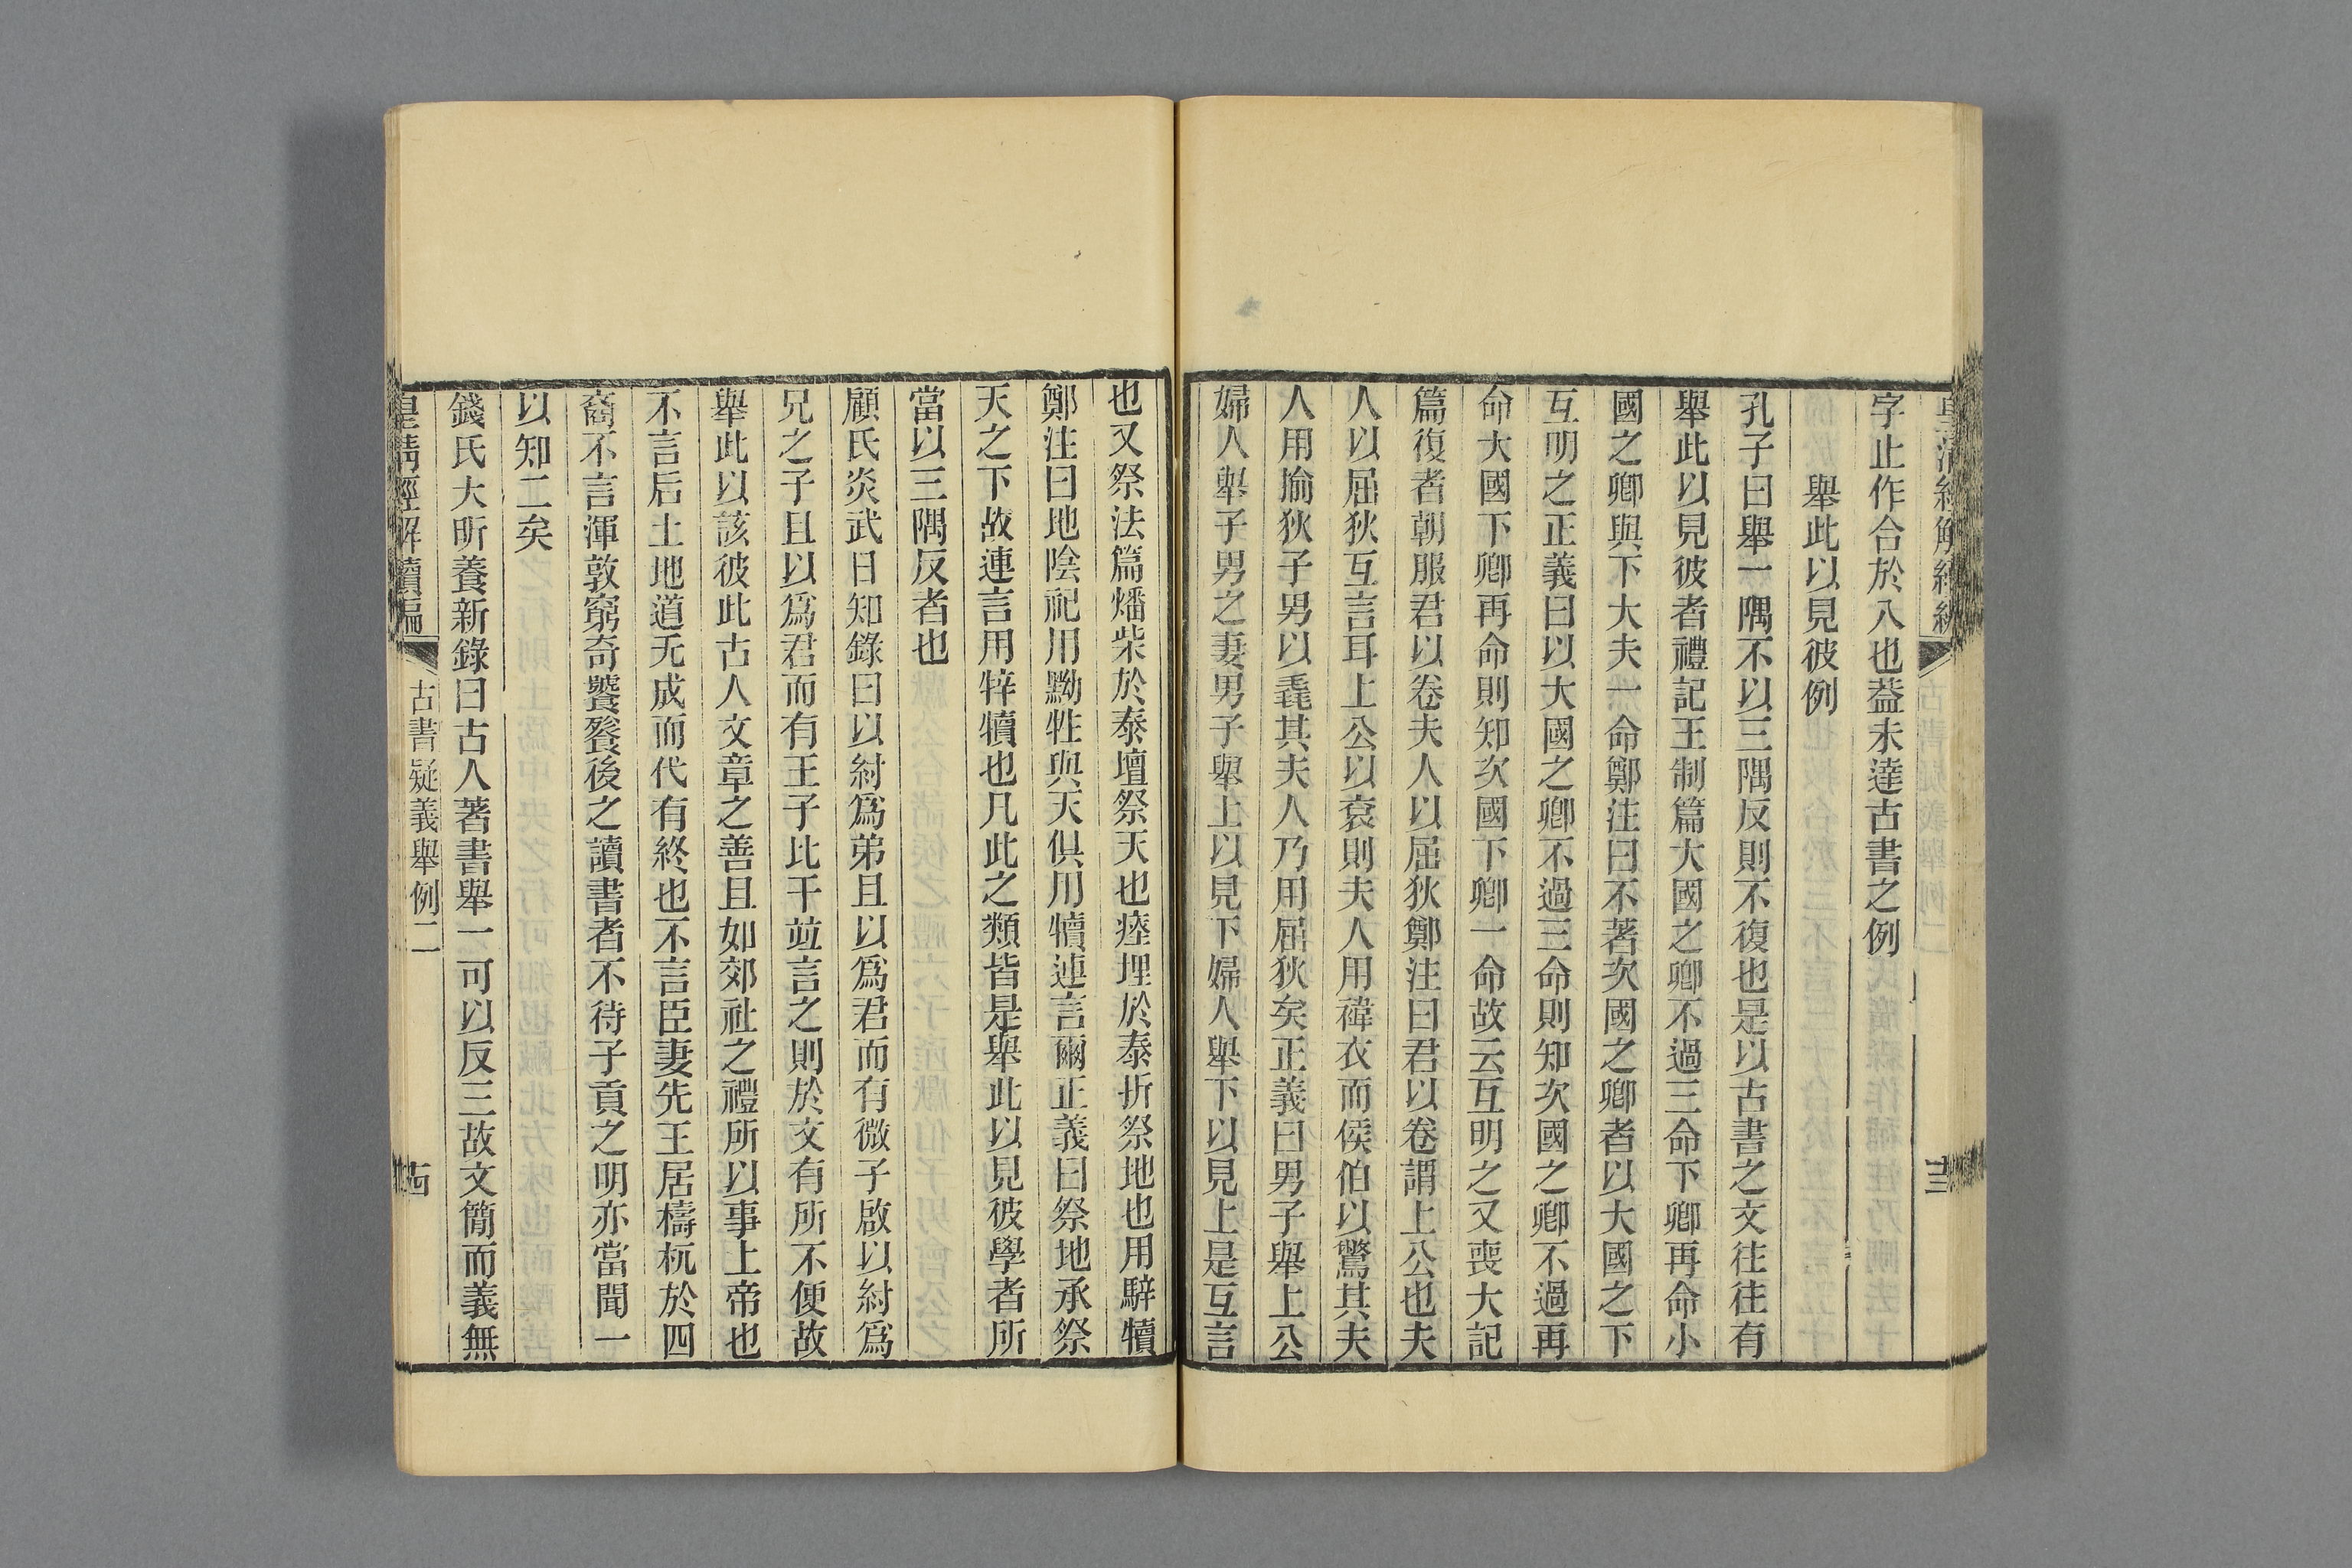 字止作合於入也葢未達古書之例
舉此以見彼例
孔子曰舉一隅不以三隅反則不復也是以古書之文往往有
舉此以見彼者禮記王制篇大國之卿不過三命下卿再命小
國之卿與下大夫一命鄭注曰不著次國之卿者以大國之下
互明之正義曰以大國之卿不過三命則知次國之卿不過再
命大國下卿再命則知次國下卿一命故云互明之又喪大記
篇復者朝服君以卷夫人以屈狄鄭注曰君以卷謂上公也夫
人以屈狄互言耳上公以袞則夫人用褘衣而侯伯以驚其夫
人用揄狄子男以毳其夫人乃用屈狄矣正義曰男子舉上公
婦人舉子男之妻男子舉上以見下婦人舉下以見上是互言
也又祭法篇燔柴於泰壇祭天也瘞埋於泰折祭地也用騂犢
鄭注曰地陰祀用黝牲與天俱用犢連言爾正義曰祭地承祭
天之下故連言用犉犢也凡此之類皆是舉此以見彼學者所
當以三隅反者也
顧氏炎武日知錄曰以紂爲弟且以爲君而有微子啟以紂爲
兄之子且以爲君而有王子比干竝言之則於文有所不便故
舉此以該彼此古人文章之善且如郊社之禮所以事上帝也
不言后土地道无成而代有終也不言臣妻先王居檮杌於四
裔不言渾敦窮奇饕餮後之讀書者不待子貢之明亦當聞一
以知二矣
錢氏大昕養新錄曰古人著書舉一可以反三故文簡而義無
皇清經解續編
古書疑義舉例二
古